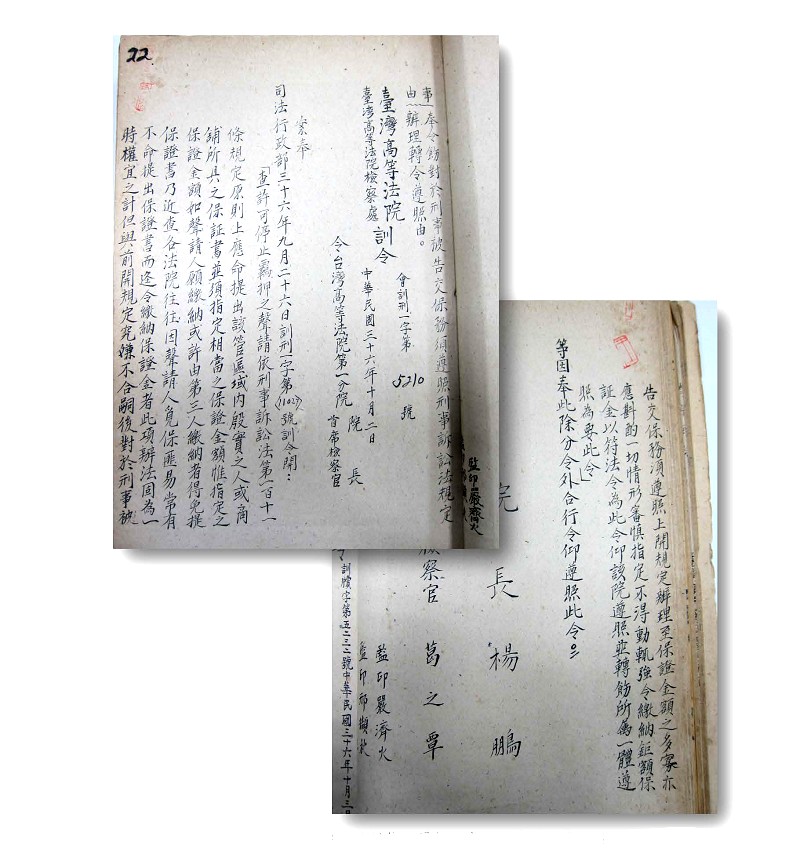 22
事由奉令飭對於刑事被告交保務須遵照刑事訴訟法規定
辦理轉令遵照由。
臺灣高等法院訓令
臺灣高等法院檢察處
會訓刑一字第5210號
中華民國三十六年十月二日
令台灣高等法院第一分院院長
首席檢察官
案奉
司法行政部三十六年九月二十六日訓刑一字第11027號訓令開：
「查許可停止羈押之聲請依刑事訴訟法第一百十一
條規定原則上應命提出該管區域內殷實之人或商
鋪所具之保証書並須指定相當之保證金額惟指定之
保證金額如聲請人願繳納或許由第三人繳納者得免提
保證書乃近查各法院往往因聲請人覓保匪易常有
不命提出保證書而逕令繳納保證金者此項辦法固為一
時權宜之計但與前開規定究嫌不合嗣後對於刑事被
監印嚴濟火
告交保務須遵照上開規定辦理至保證金額之多寡亦
應斟酌一切情形審慎指定不得動輒強令繳納鉅額保
証金以符法令為此令仰該院遵照並轉飭所屬一體遵
照為要此令」
等因奉此除分令外合行令仰遵照此令。
院長楊鵬
檢察官葛之覃
監印嚴濟火
監印
訓牘字第五二三二號中華民國三十六年十月三日